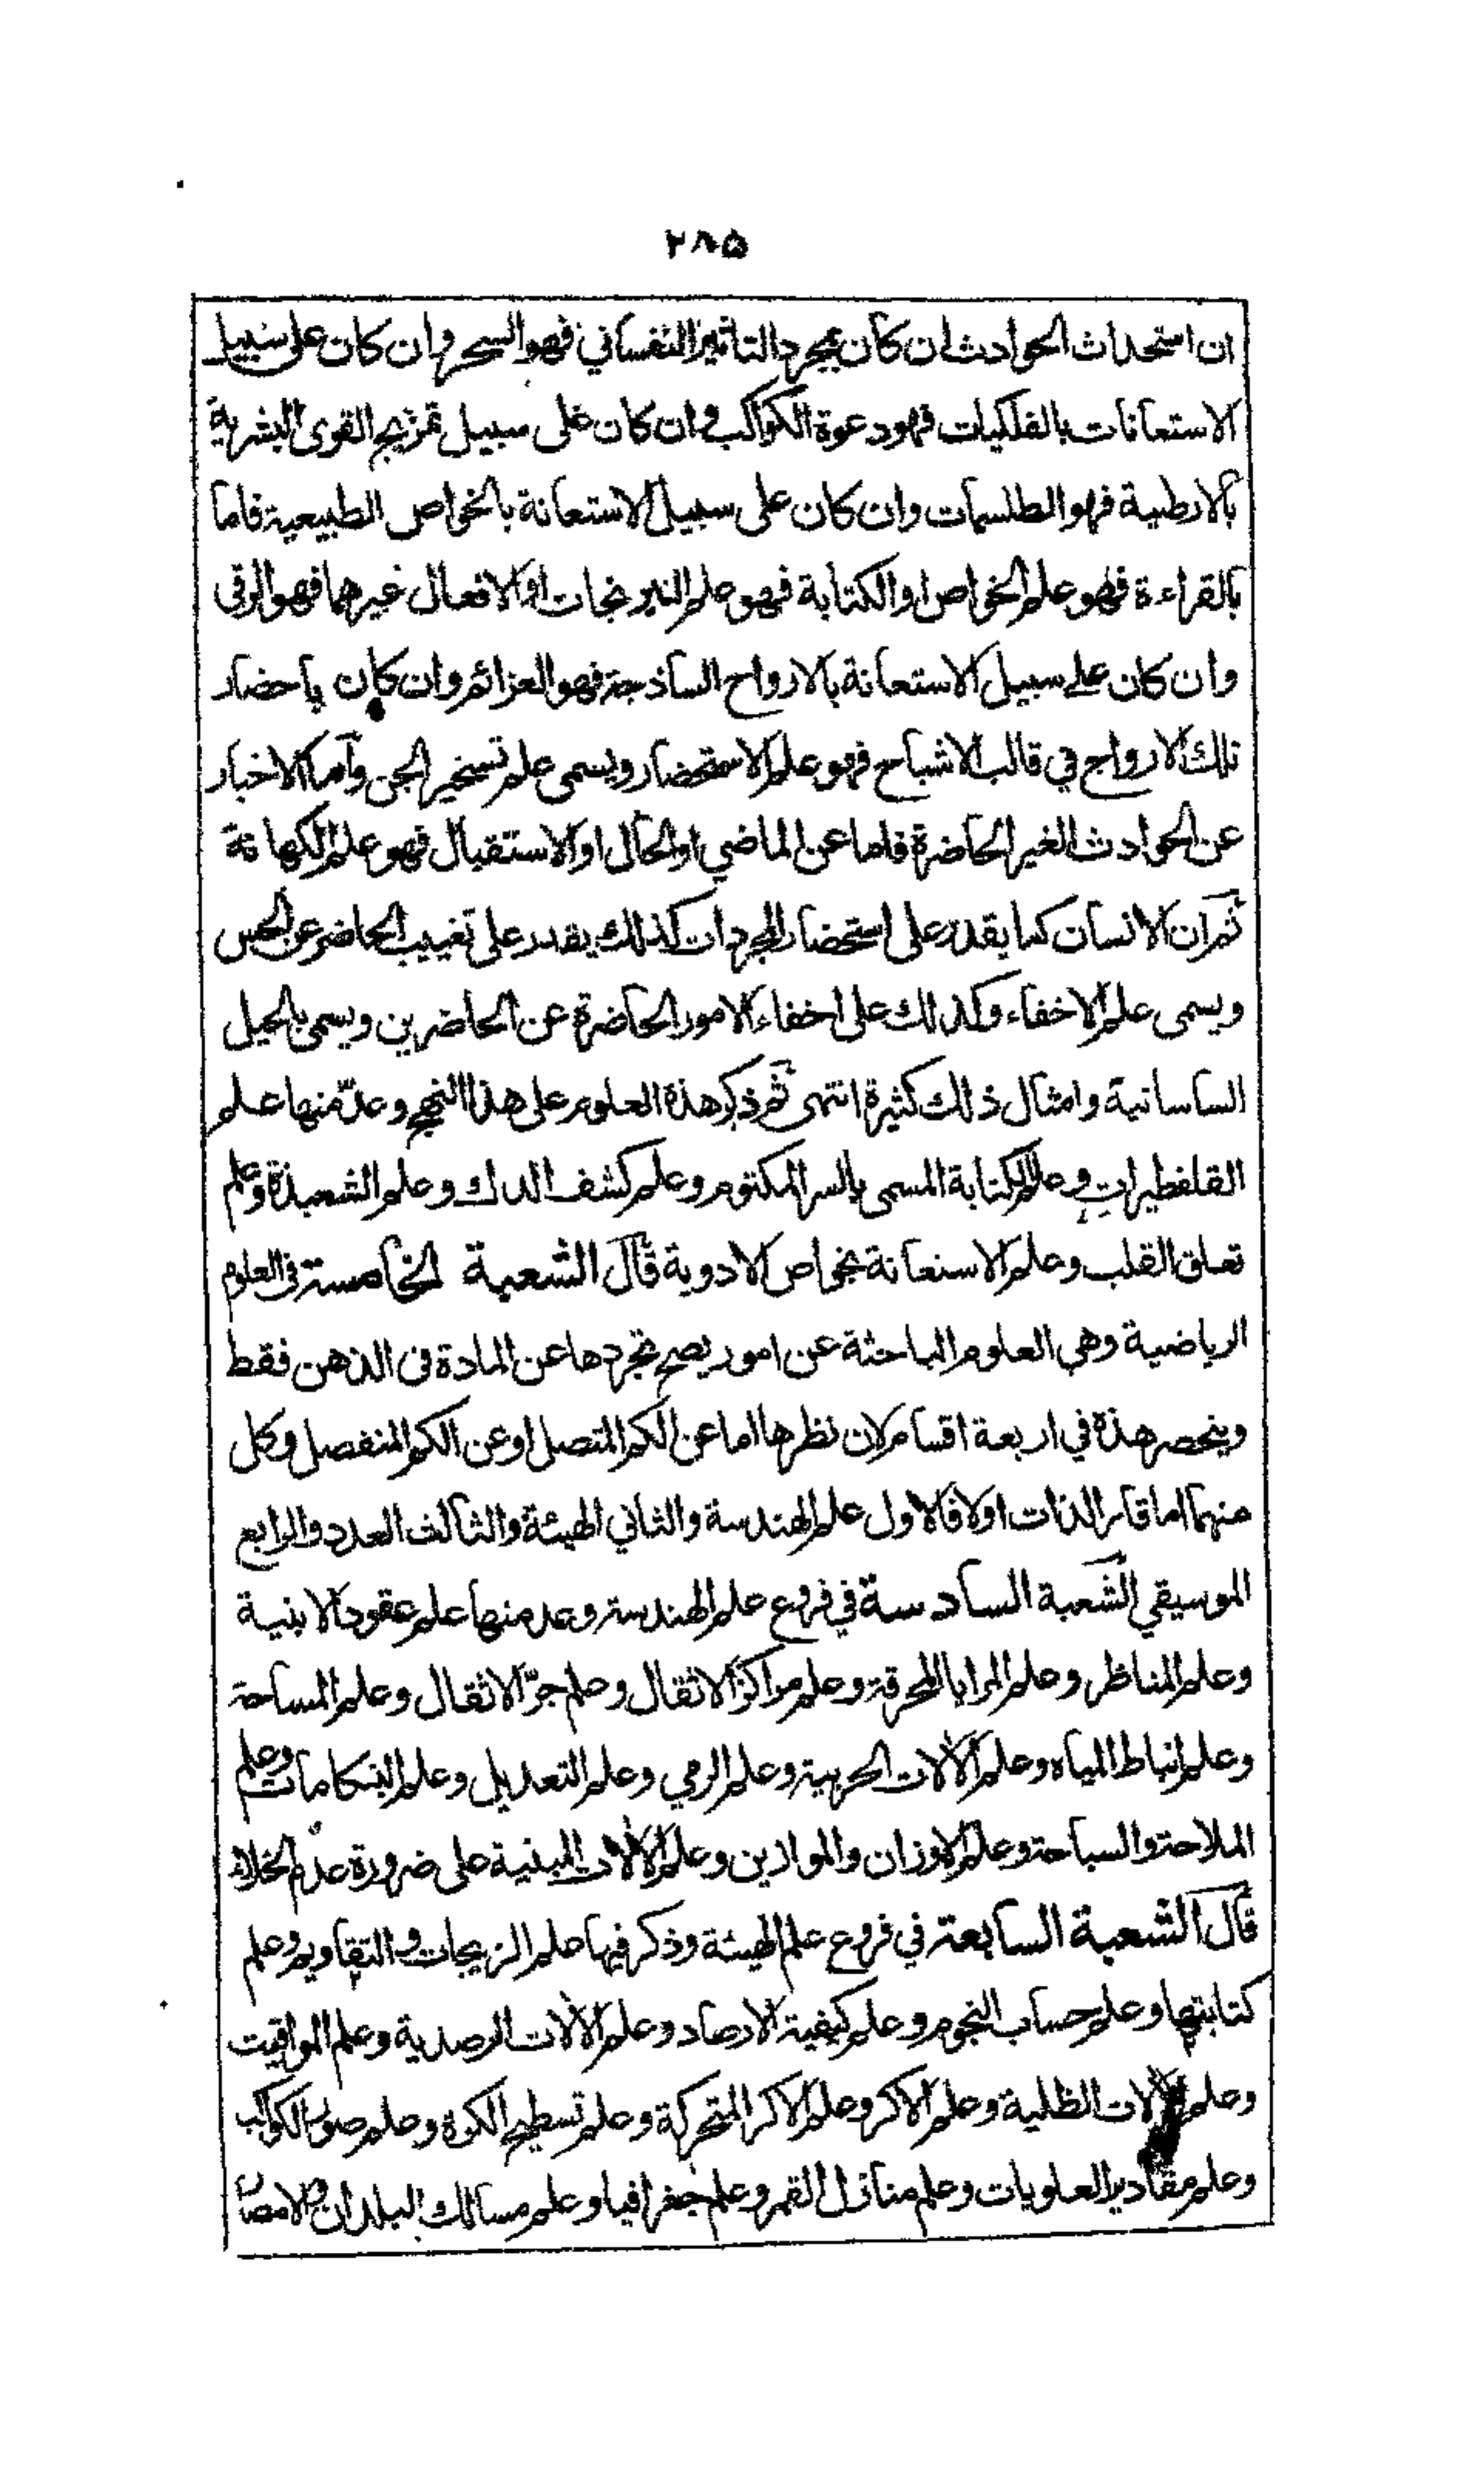 ٢٨۵
ان استحداث الحوادث ان كان بمجرد التاثير النفساني فهو السحر وان كان على سبيل
الاستعانات بالفلكيات فهو دعوة الكواكب وان كان على سبيل تمزيج القوى البشرية
بالارطبية فهو الطلسمات وان كان على سبيل الاستعانة بالخواص الطبيعية فاما
بالقراءة فهو علم الخواص او الكتابة فهو علم النيرنجات او الافعال غيرهما فهو الرقى
وان كان على سبيل الاستعانة بالارواح الساذجة فهو العزائم وان كان باحضار
تلك الارواح في قالب الاشباح فهو علم الاستحضار ويسمى علم تسخير الجن وأما الاخبار
عن الحوادث الغير الحاضرة فاما عن الماضي او الحال او الاستقبال فهو علم الكهانة
ثم ان الانسان كما يقدر على استحضار المجردات كذلك يقدر على تغييب الحاضر عن الحس
ويسمى علم الاخفاء وكذلك على اخفاء الامور الحاضرة عن الحاضرين ويسمى بالحيل
الساسانية وامثال ذلك كثيرة انتهى ثم ذكر هذه العلوم على هذا النهج وعدّ منها علم
القلفطيرات وعلم الكتابة المسمى بالسر المكتوم وعلم كشف الدك وعلم الشعبذة وعلم
تعلق القلب وعلم الاستعانة بخواص الادوية قال الشعبة الخامسة في العلوم
الرياضية وهي العلوم الباحثة عن امور يصح تجردها عن المادة في الذهن فقط
وينحصر هذة في اربعة اقسام لان نظرها اما عن الكم المتصل او عن الكم المنفصل وكل
منهما اما قار الذات اولا فالاول علم الهندسة والثاني الهيئة والثالث العدد والرابع
الموسيقي الشعبة السادسة في فروع علم الهندسة وعد منها علم عقود الابنية
وعلم المناظر وعلم المرايا المحرقة وعلم مراكز الاثقال وعلم جرّ الاثقال وعلم المساحة
وعلم انباط المياه وعلم الآلات الحربية وعلم الرمي وعلم التعديل وعلم البنكامات وعلم
الملاحة والسباحة وعلم الاوزان والموازين وعلم الآلات المبنية على ضرورة عدم الخلاء
قال الشعبة السابعة في فروع علم الهيئة وذكر فيها علم الزيجات والتقاويم وعلم
كتابتها وعلم حساب النجوم وعلم كيفية الارصاد وعلم الآلات الرصدية وعلم المواقيت
وعلم الآلات الظلية وعلم الاكر وعلم الاكر المتحركة وعلم تسطيح الكرة وعلم صور الكواكب
وعلم مقادير العلويات وعلم منازل القمر وعلم جغرافيا وعلم مسالك البلدان والامصار